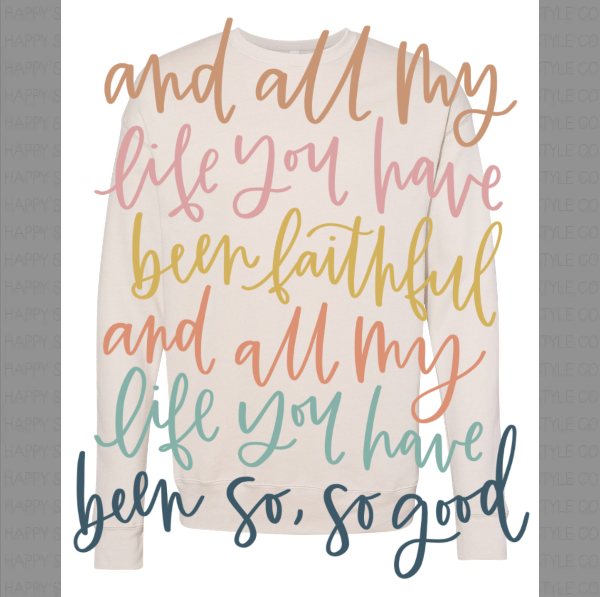 and all my
life you have
been faithful
and all my
life you have
been so, so good